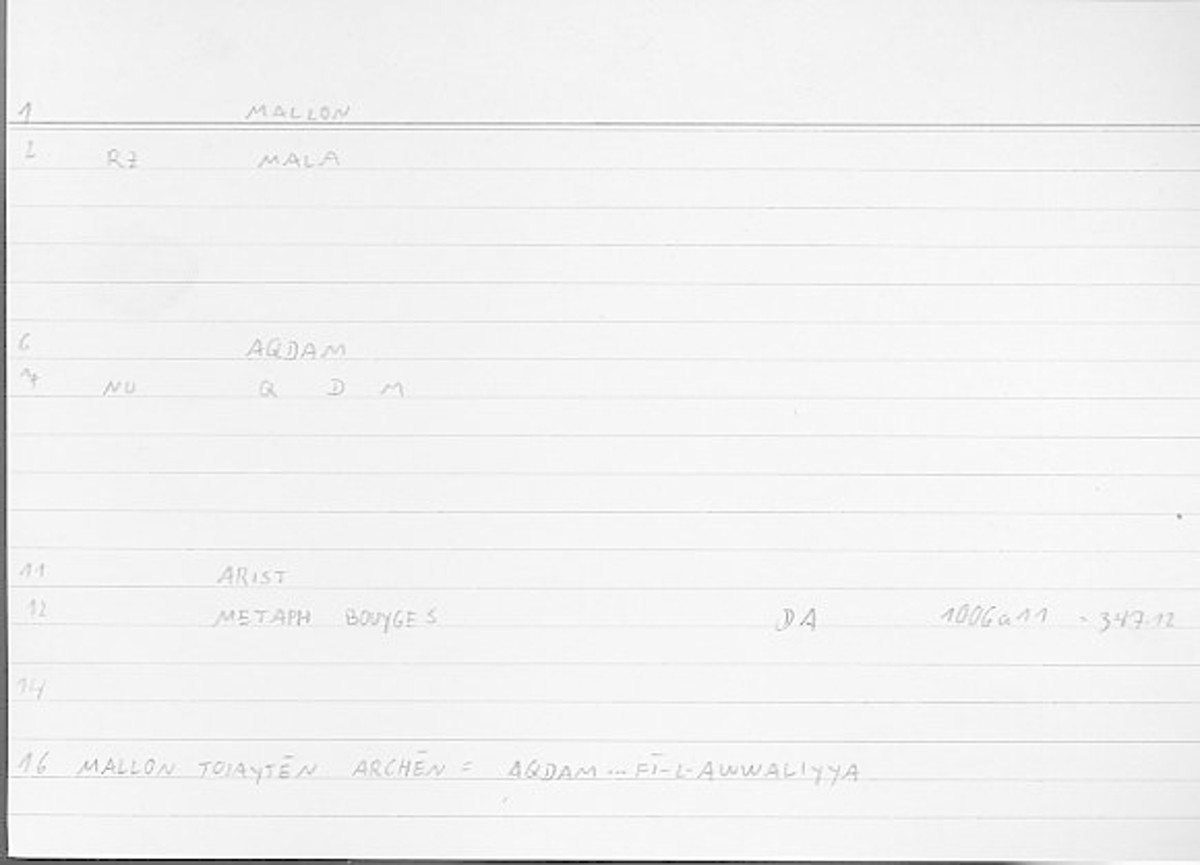 1 MALLON
2 RZ MALA
6 AQDAM
7 NU Q D M
11 ARIST
12 METAPH BOUYGES DA 1006a11 = 347.12
14
16 MALLON TOIAYTĒN ARCHĒN = AQDAM ... FĪ-L-AWWALIYYA